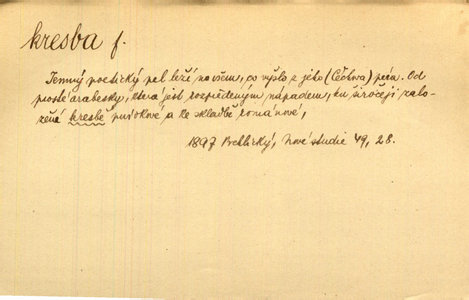 kresba f.
Jemný poetický pel leží na všem, co vyšlo z jeho (Čechova) péra. Od
prosté arabesky, která jest rozpředeným nápadem, ku široceji zalo-
žené kresbě povahové a ke skladbě románové,
1897 Vrchlický, Nové studie 49, 28.